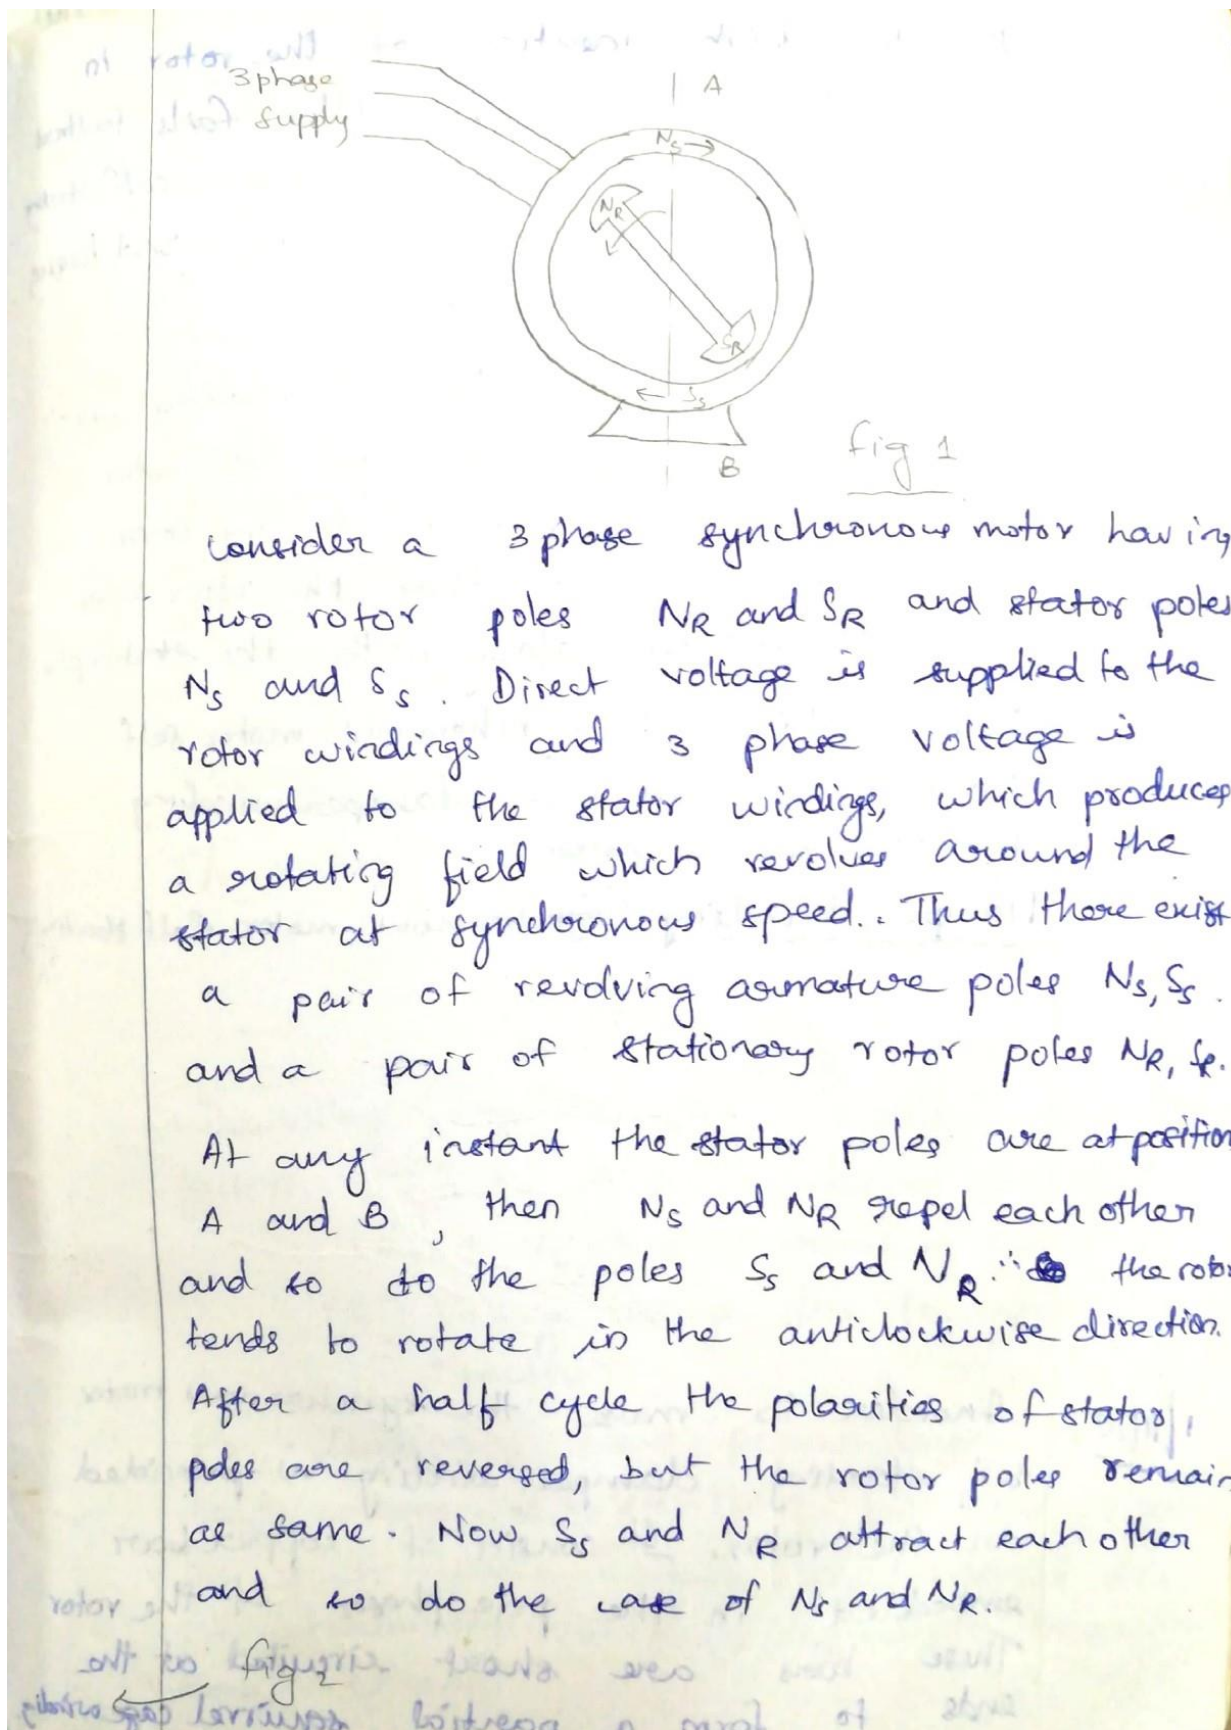 3 phase
supply
A
NS
NR
SR
SS
B
fig 1
consider a 3 phase synchronous motor having
two rotor poles NR and SR and stator poles
NS and SS. Direct voltage is supplied to the
rotor windings and 3 phase voltage is
applied to the stator windings, which produces
a rotating field which revolves around the
stator at synchronous speed.. Thus there exist
a pair of revolving armature poles NS, SS.
and a pair of stationary rotor poles NR, SR.
At any instant the stator poles are at position
A and B, then NS and NR repel each other
and so do the poles SS and NR ∴ the rotor
tends to rotate in the anticlockwise direction.
After a half cycle the polarities of stator
poles are reversed, but the rotor poles remain
as same. Now SS and NR attract each other
and so do the case of NS and NR.
fig 2